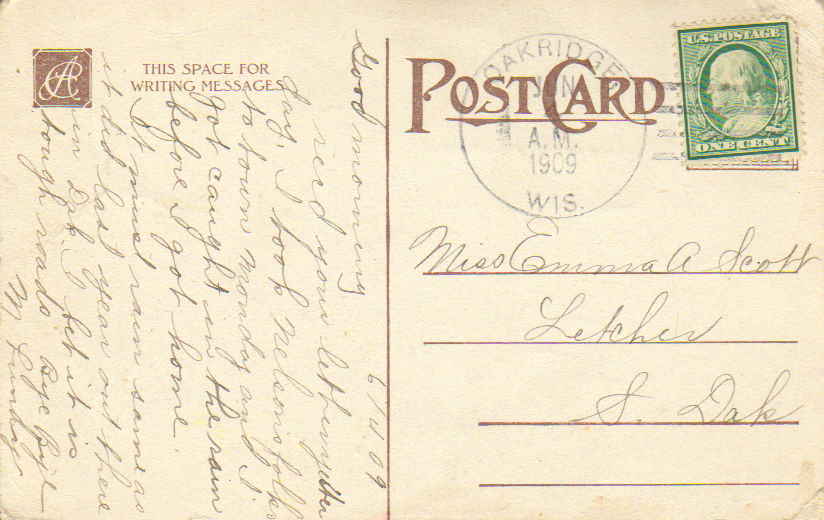 THIS SPACE FOR
WRITING MESSAGES
POST CARD
OAKRIDGE
JUN
A.M.
1909
WIS.
U.S. POSTAGE
ONE CENT
6/14 09
Good morning
recd your letter yester
day, I took Nelsons folks
to town Monday and I
got caught in the rain
before I got home.
It must rain same as
it did last year out there
in Dak. I bet it is
tough roads Bye Bye
M Lundy
Miss Emma A Scott
Letcher
S. Dak